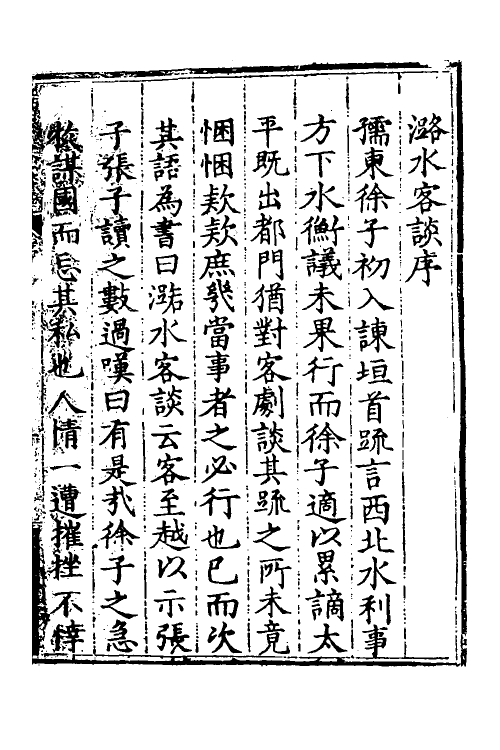 潞水客談序
孺東徐子初入諫垣首疏言西北水利事
方下水衡議未果行而徐子適以累謫太
平既出都門猶對客劇談其疏之所未竟
悃悃欵欵庶幾當事者之必行也已而次
其語為書曰潞水客談云客至越以示張
子張子讀之數過嘆曰有是㢤徐子之急
謀國而忘其私也人情一遭摧挫不